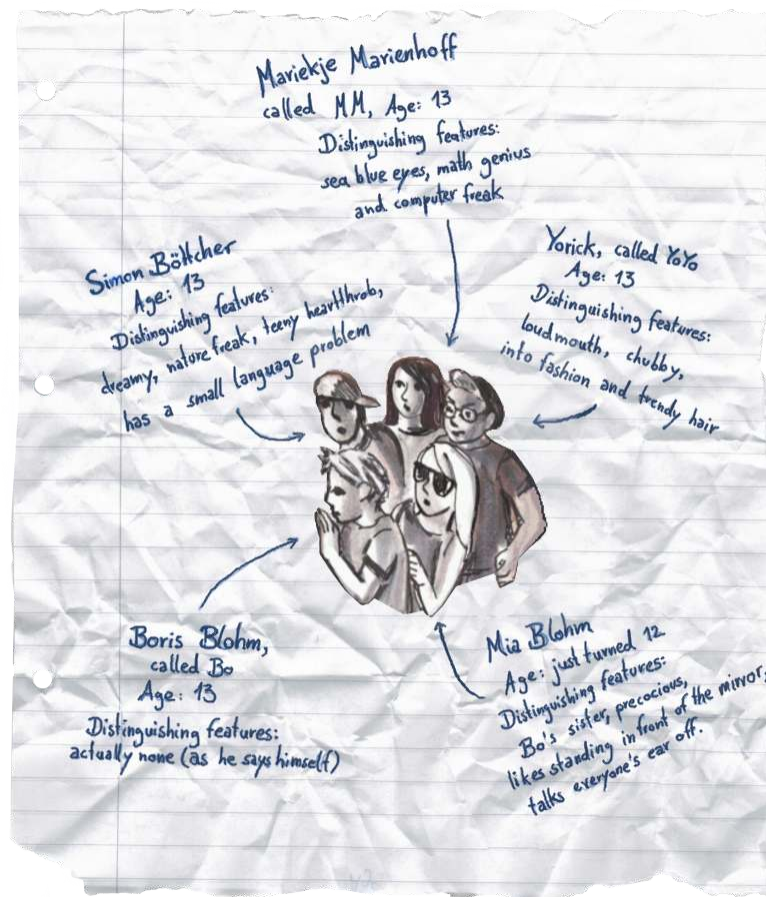 Mariekje Marienhoff
called MM, Age: 13
Distinguishing features:
sea blue eyes, math genius
and computer freak
Simon Böttcher
Age: 13
Distinguishing features:
dreamy, nature freak, teeny heartthrob,
has a small language problem
Yorick, called YoYo
Age: 13
Distinguishing features:
loudmouth, chubby,
into fashion and trendy hair
Boris Blohm,
called Bo
Age: 13
Distinguishing features:
actually none (as he says himself)
Mia Blohm
Age: just turned 12
Distinguishing features:
Bo's sister, precocious,
likes standing in front of the mirror,
talks everyone's ear off.